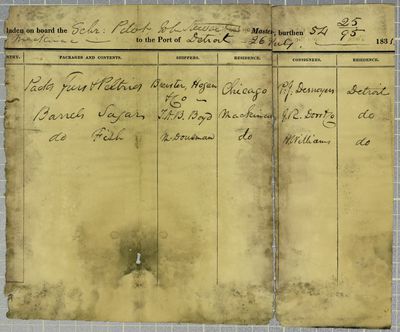 laden on board the Schr: Pilot Master, burthen 54 25/95
to the Port of Detroit 26 July 1831
ENTRY. PACKAGES AND CONTENTS. SHIPPERS. RESIDENCE. CONSIGNEES. RESIDENCE.
Packs Furs & Peltries Brewster, Hogan Chicago P. J. Desnoyers Detroit
& Co
Barrels Sugar Boyd Mackinac J. R. Dorr & Co do
do Fish M. Dousman do Williams do